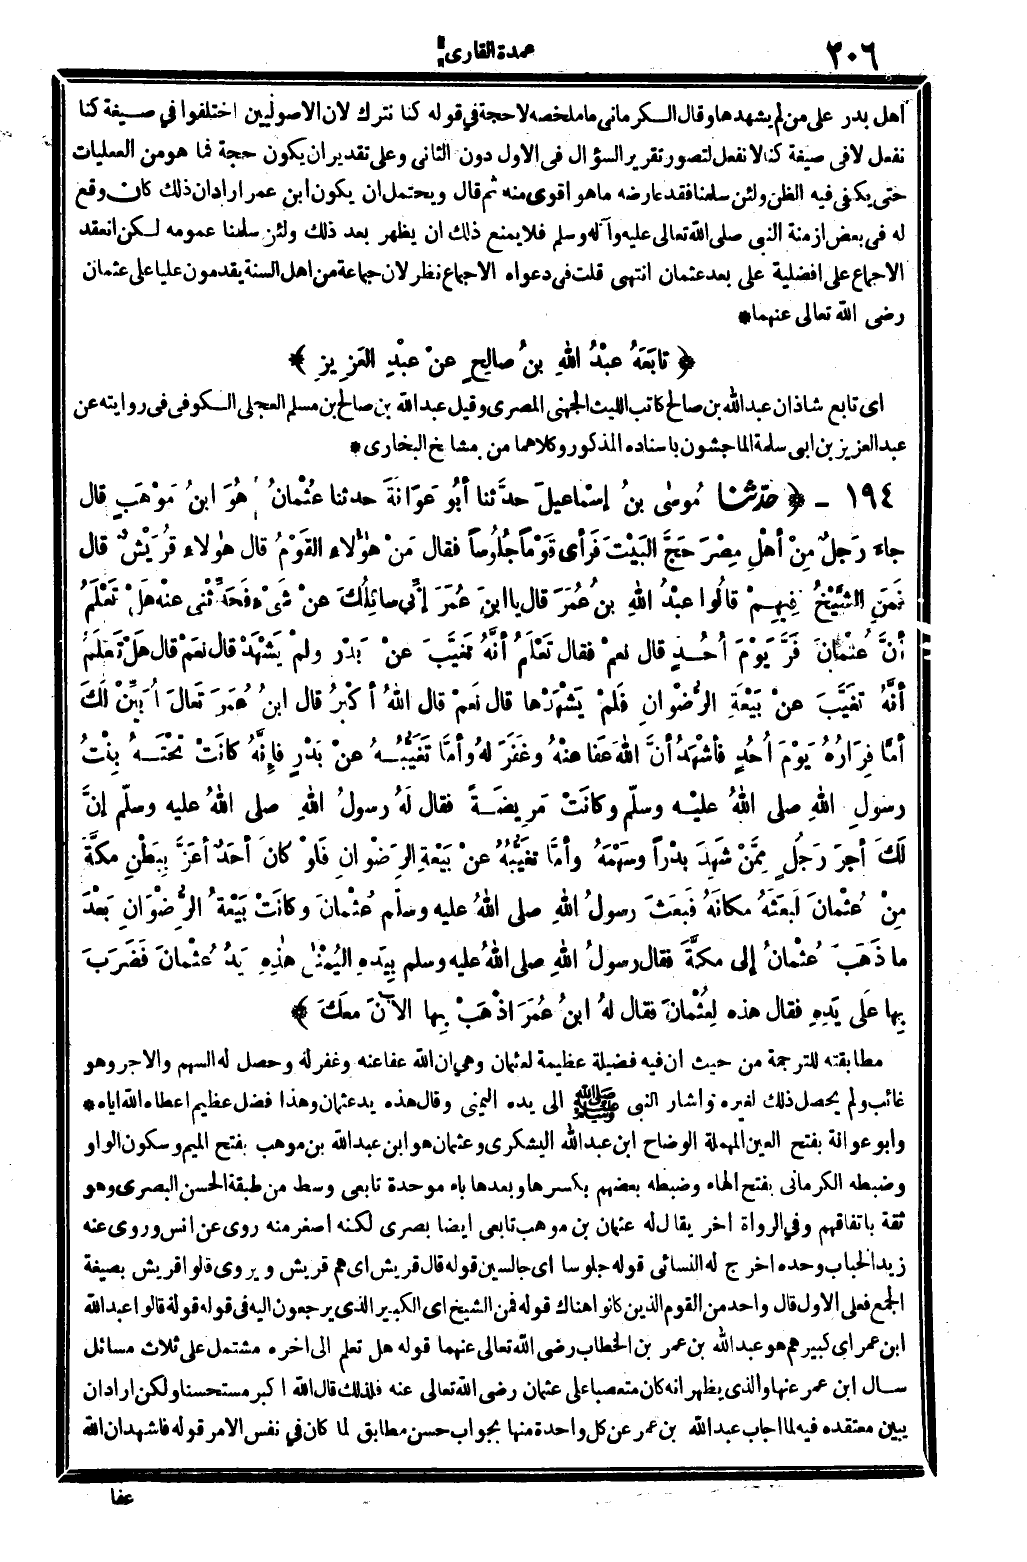 ٢٠٦
عمدة القارى
أهل بدر على من لم يشهدها وقال الكرمانى ما ملخصه لا حجة في قوله كنا نترك لان الاصوليين اختلفوا في صيغة كنا
نفعل لا في صيغة كنا لا نفعل لتصور تقرير السؤال فى الاول دون الثانى وعلى تقدير ان يكون حجة فما هو من العمليات
حتى يكفى فيه الظن ولئن سلمنا فقد عارضه ما هو اقوى منه ثم قال ويحتمل ان يكون ابن عمر اراد ان ذلك كان وقع
له فى بعض ازمنة النبى صلى الله تعالى عليه وآله وسلم فلا يمنع ذلك ان يظهر بعد ذلك ولئن سلمنا عمومه لكن انعقد
الاجماع على افضلية على بعد عثمان انتهى قلت فى دعواه الاجماع نظر لان جماعة من اهل السنة يقدمون عليا على عثمان
رضى الله تعالى عنهما *
﴿ تابَعَهُ عبْدُ اللهِ بنُ صالحٍ عنْ عبْدِ العَزِيزِ ﴾ *
اى تابع شاذان عبد الله بن صالح كاتب الليث الجهنى المصرى وقيل عبد الله بن صالح بن مسلم العجلى الكوفى فى روايته عن
عبد العزيز بن ابى سلمة الماجشون باسناده المذكور وكلاهما من مشايخ البخارى *
١٩٤ - ﴿ حدّثنا مُوسٰى بنُ إسْماعيلَ حدثنا أبُو عَوَانةَ حدثنا عُثْمانُ هُوَ ابنُ مَوْهَبٍ قال
جاء رَجلٌ مِنْ أهْلِ مِصْرَ حَجَّ البَيْتَ فَرأى قَوْماً جُلُوساً فقال مَنْ هٰؤلاءِ القَوْمُ قال هٰؤلاءِ قُرَيْشٌ قال
فَمَنِ الشَّيْخُ فِيهِمْ قالُوا عبْدُ اللهِ بنُ عُمَرَ قال يا ابنَ عُمَرَ إنِّي سائِلُكَ عنْ شَىْءٍ فَحَدِّثْنى عنْه هَلْ تَعْلَمُ
أنَّ عُثْمانَ فَرَّ يَوْمَ أُحُدٍ قال نعمْ فقال تَعْلَمُ أنَّهُ تَغَيَّبَ عنْ بَدْرٍ ولَمْ يَشْهَدْ قال نعَمْ قال هَلْ تَعْلَمُ
أنَّهُ تغَيَّبَ عنْ بَيْعَةِ الرِّضْوانِ فَلَمْ يَشْهَدْها قال نَعمْ قال اللهُ أكْبرُ قال ابنُ عُمَرَ تَعالَ أُبَيِّنْ لَكَ
أمَّا فِرَارُهُ يَوْمَ أُحُدٍ فأشْهَدُ أنَّ اللهَ عَفا عنْهُ وغَفَرَ لهُ وأمَّا تَغَيُّبُهُ عنْ بَدْرٍ فإنَّهُ كانَتْ تحْتَهُ بِنْتُ
رسولِ اللهِ صلى اللهُ عليْهِ وسلَّم وكانَتْ مَرِيضَةً فقال لَهُ رسولُ اللهِ صلى اللهُ عليه وسلَّم إنَّ
لَكَ أجرَ رَجُلٍ مِمَّنْ شَهِدَ بدْراً وسَهْمَهُ وأمَّا تغَيُّبُهُ عنْ بَيْعةِ الرِّضْوانِ فَلوْ كانَ أحَدٌ أعَزَّ بِبَطْنِ مكَّةَ
مِنْ عُثْمانَ لَبعَثَهُ مكانَهُ فبَعثَ رسولُ اللهِ صلى اللهُ عليه وسلَّم عُثْمانَ وكانَتْ بَيْعةُ الرِّضْوانِ بَعْدَ
ما ذَهَبَ عُثْمانُ إلى مكَّةَ فقال رسولُ اللهِ صلى اللهُ عليه وسلم بِيَدِهِ اليُمْنىٰ هٰذِهِ يَدُ عُثْمانَ فَضَرَبَ
بِها عَلَى يَدِهِ فقال هذه لِعُثْمانَ فقال لهُ ابنُ عُمَرَ اذْهَبْ بِها الآنَ معَكَ ﴾
مطابقته للترجمة من حيث ان فيه فضيلة عظيمة لعثمان وهي ان الله عفا عنه وغفر له وحصل له السهم والاجر وهو
غائب ولم يحصل ذلك لغيره واشار النبى ﷺ الى يده اليمنى وقال هذه يد عثمان وهذا فضل عظيم اعطاه الله اياه *
وابو عوانة بفتح العين المهملة الوضاح ابن عبد الله اليشكرى وعثمان هو ابن عبد الله بن موهب بفتح الميم وسكون الواو
وضبطه الكرمانى بفتح الهاء وضبطه بعضهم بكسرها وبعدها باء موحدة تابعى وسط من طبقة الحسن البصرى وهو
ثقة باتفاقهم وفي الرواة آخر يقال له عثمان بن موهب تابعى ايضا بصرى لكنه اصغر منه روى عن انس وروى عنه
زيد الحباب وحده اخرج له النسائى قوله جلوسا اى جالسين قوله قال قريش اى هم قريش ويروى قالوا قريش بصيغة
الجمع فعلى الاول قال واحد من القوم الذين كانوا هناك قوله فمن الشيخ اى الكبير الذى يرجعون اليه فى قوله قوله قالوا عبد الله
ابن عمر اى كبيرهم هو عبد الله بن عمر بن الخطاب رضى الله تعالى عنهما قوله هل تعلم الى اخره مشتمل على ثلاث مسائل
سال ابن عمر عنها والذى يظهر انه كان متعصبا على عثمان رضى الله تعالى عنه فلذلك قال الله اكبر مستحسنا ولكن اراد ان
يبين معتقده فيه لما اجاب عبد الله بن عمر عن كل واحدة منها بجواب حسن مطابق لما كان في نفس الامر قوله فاشهد ان الله
عفا